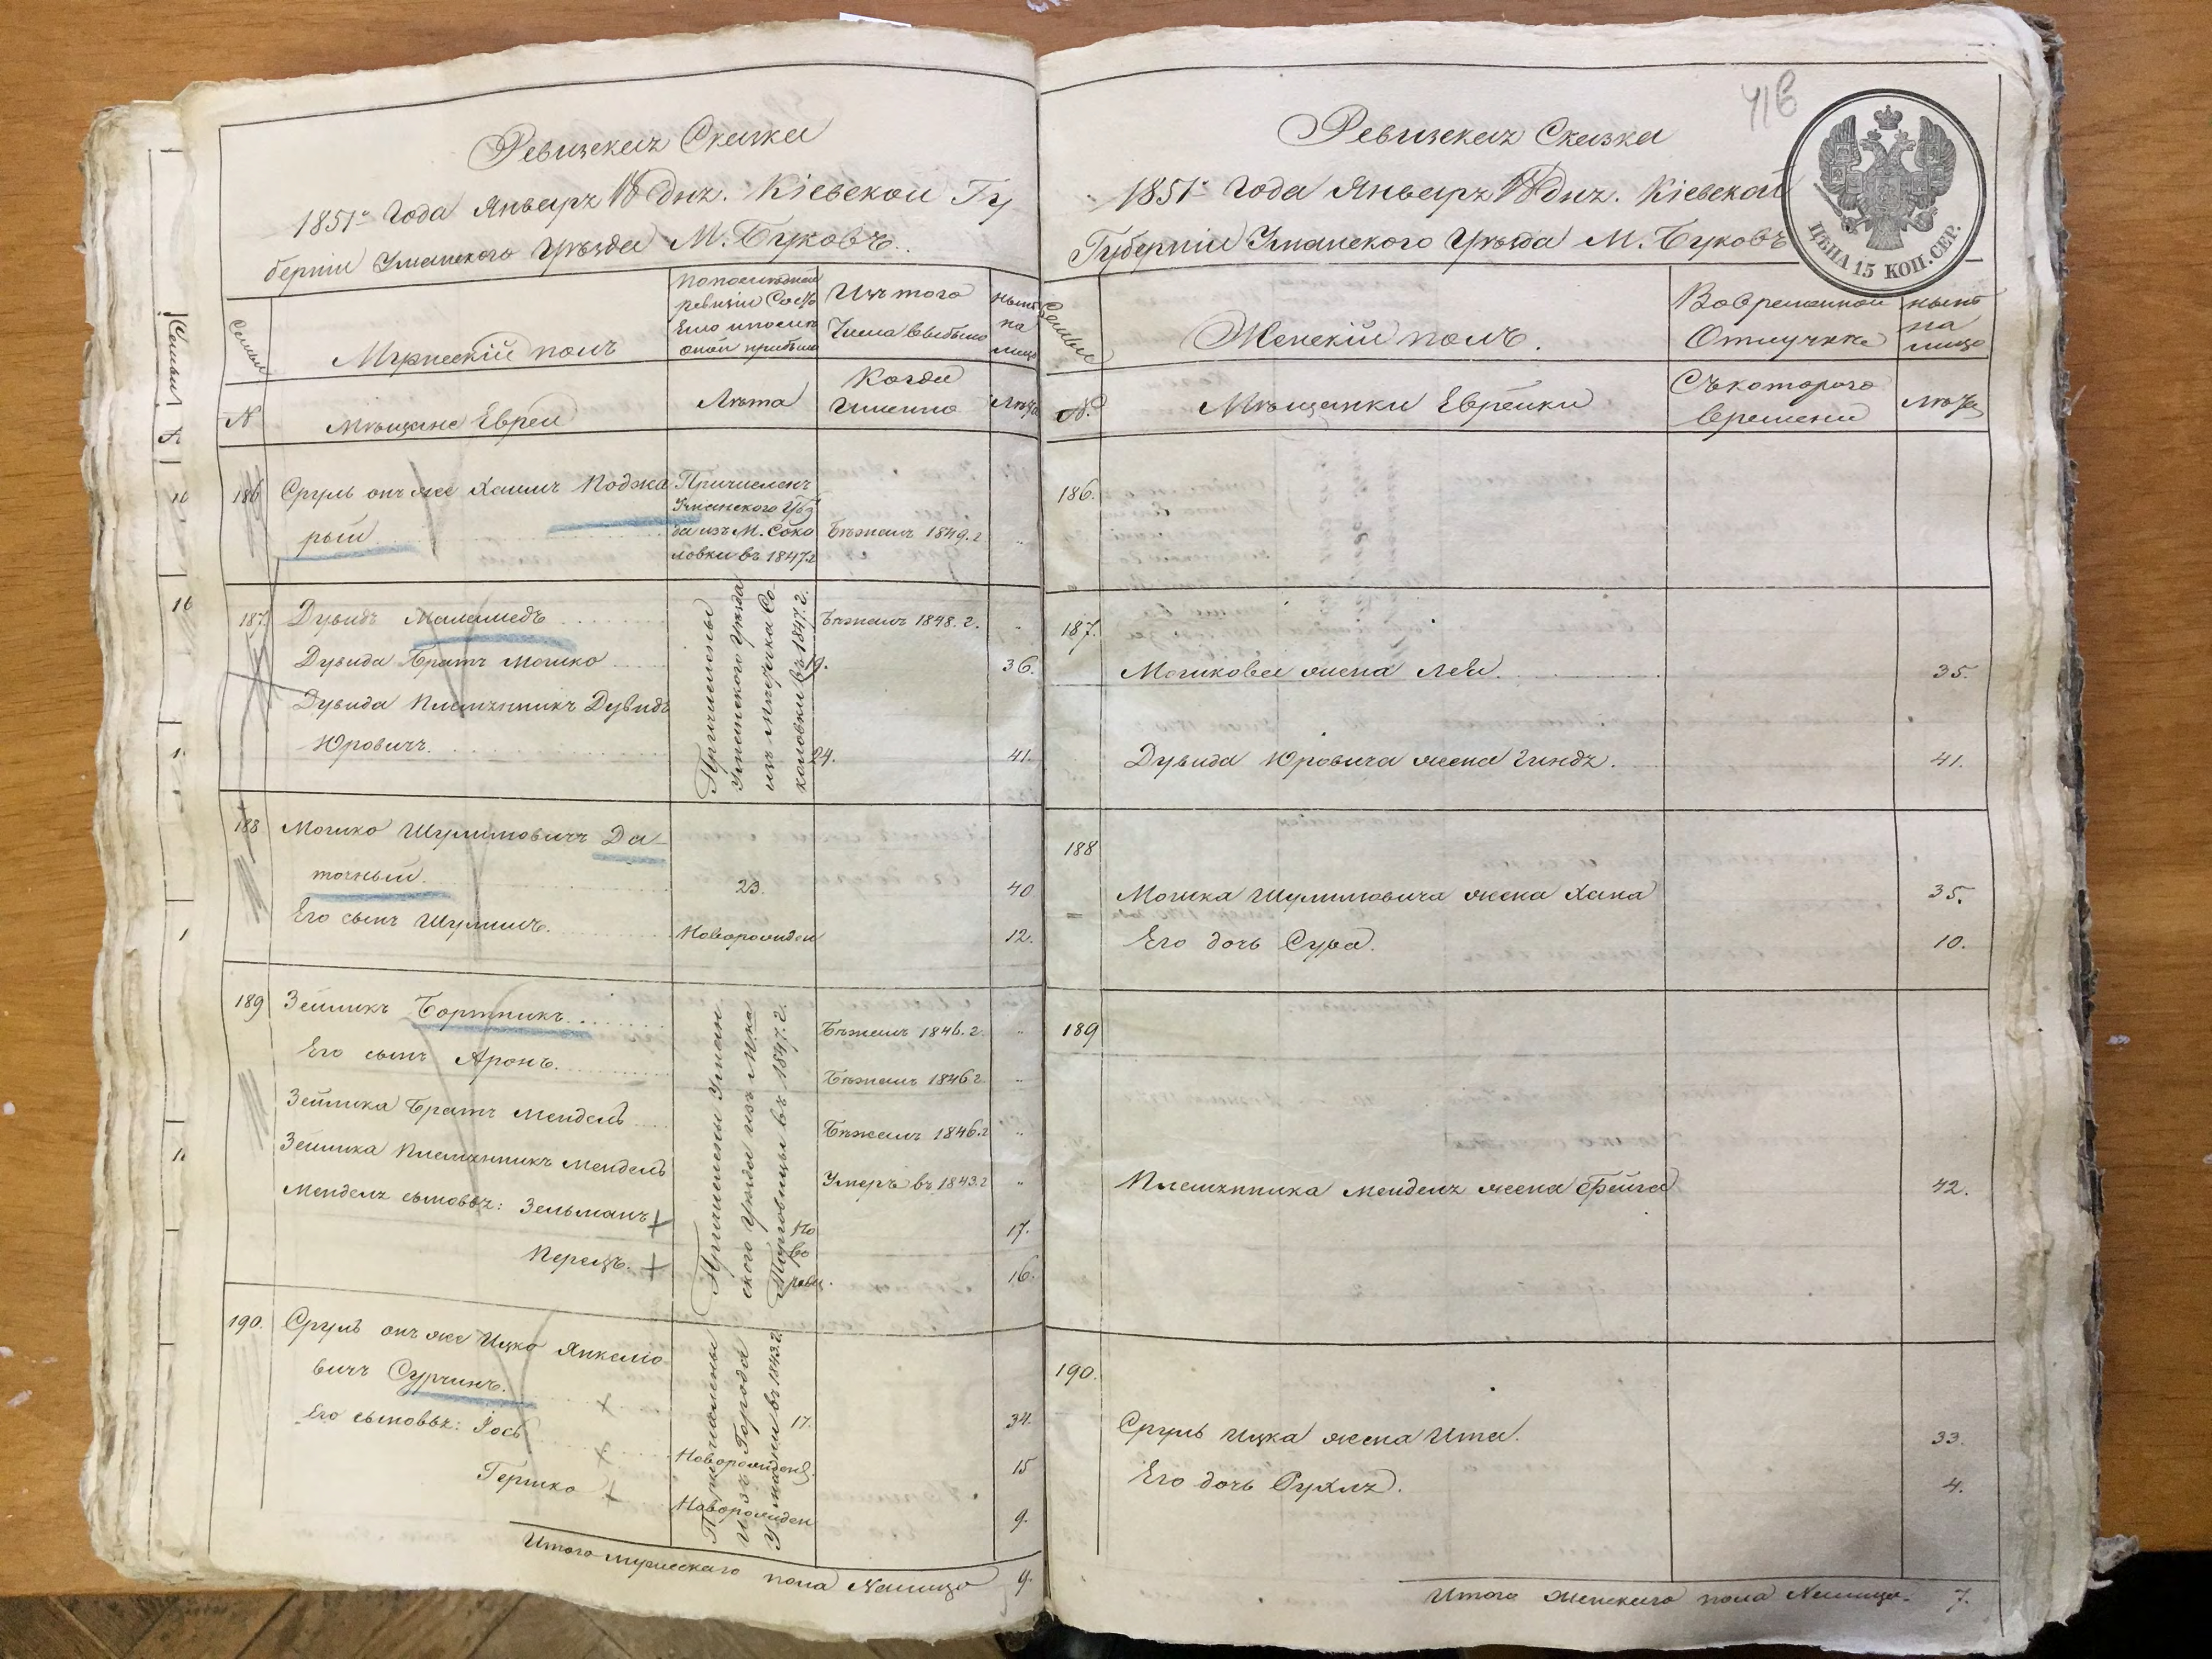 Ревизская Сказка
1851го Года Января 18 дня. Кіевской Гу
берніи Уманскаго Уѣзда М. Буковъ.
Семьи
Мужескій полъ
По последней
ревизіи Состо
яло и после
оной прибыло
Изъ того
Числа выбыло
ныне
на
лицо
N
Мѣщане Евреи
Лѣта
Когда
Именно
Лѣта
186
Сруль онъ же Хаимъ Поджа
рый
Причисленъ
Уманского Уѣз
да изъ М. Соко
ловки въ 1847 г
Бѣжалъ 1849. г.
187.
Дувидъ Маламедъ
Бѣжалъ 1848. г.
Дувида Братъ Мошко
19.
36.
Дувида Племянникъ Дувидъ
Юровичъ
24.
41.
Причислены
Уманского Уѣзда
изъ Мистечка Со
коловки въ 1847. г.
188
Мошко Шулимовичъ Да-
точный.
23.
40
Его сынъ Шулимъ.
Новорожден
12.
189
Зейликъ Бортникъ.
Бѣжалъ 1846. г.
Его сынъ Аронъ.
Бѣжалъ 1846 г
Зейлика Братъ Мендель
Бѣжалъ 1846. г
Зейлика Племянникъ Мендель
Умеръ въ 1843. г
Менделя сыновья: Зельманъ
Но
17.
Перецъ.
во
рожд.
16.
Причислены Уман
ского Уѣзда изъ М-ка
Торговицы въ 1847. г.
190.
Сруль онъ же Ицко Янкелю
вичъ Сурчинъ.
17.
34.
Его сыновья: Іось
Новорожденъ.
15
Гершко
Новорожден
9.
Причислены
Изъ Города
Умани въ 1843. г.
Итого мужескаго пола Налицо 9.
Ревизская Сказка
1851го Года Января 18 дня. Кіевской
Губерніи Уманского Уѣзда М. Буковъ
ЦѢНА 15 КОП. СЕР.
Семьи
Женскій полъ.
Во временной
Отлучке
ныне
на
лицо
№.
Мѣщанки Еврейки
Съ котораго
времени
Лѣта
186.
187.
Мошкова жена Лея.
35.
Дувида Юровича жена Гиндя.
41.
188
Мошка Шулимовича жена Хана
35.
Его дочь Сура.
10.
189
Племянника Менделя жена Фрейга
42.
190.
Сруль Ицка жена Ита.
33.
Его дочь Рухля.
4.
Итого женскаго пола Налицо. 7.